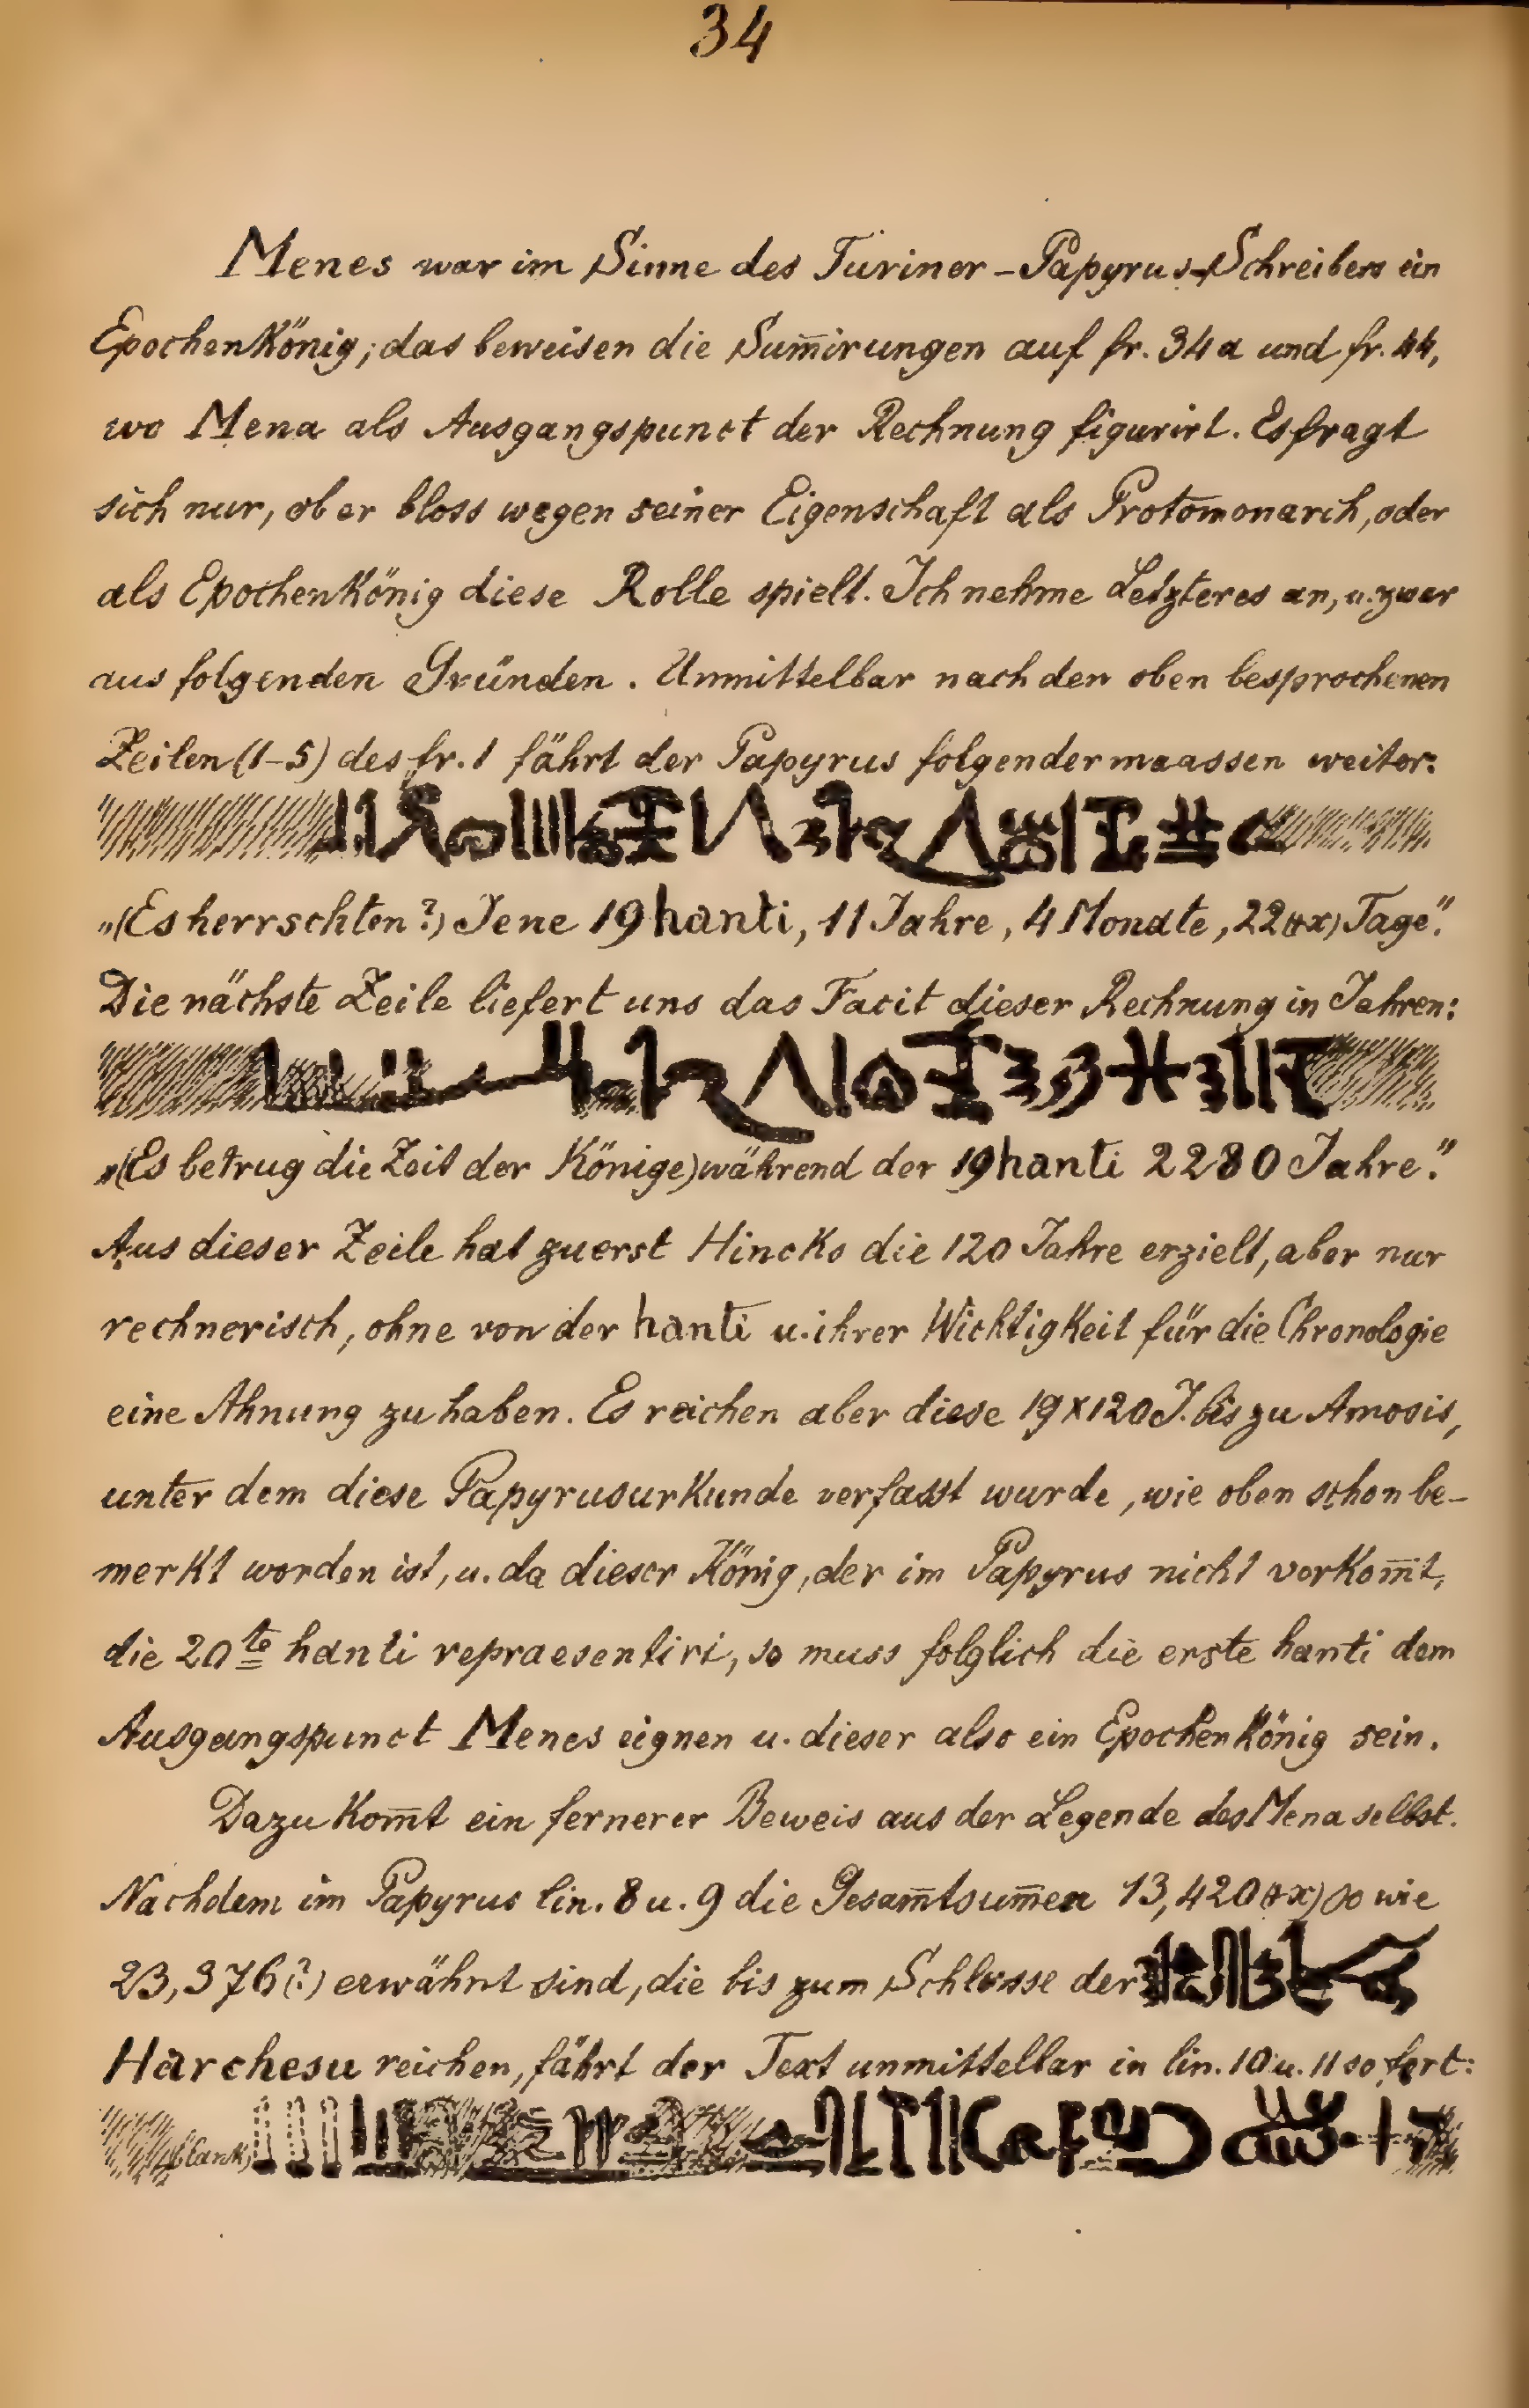 34
Menes war im Sinne des Turiner-Papyrus-Schreibers ein
Epochenkönig; das beweisen die Sum̄irungen auf fr. 34a und fr. 44,
wo Mena als Ausgangspunct der Rechnung figurirt. Es fragt
sich nur, ob er bloss wegen seiner Eigenschaft als Protomonarch, oder
als Epochenkönig diese Rolle spielt. Ich nehme Letzteres an, u. zwar
aus folgenden Gründen. Unmittelbar nach den oben besprochenen
Zeilen (1-5) des fr. 1 fährt der Papyrus folgendermaassen weiter:
„(Es herrschten?) Jene 19 hanti, 11 Jahre, 4 Monate, 22(+x) Tage."
Die nächste Zeile liefert uns das Facit dieser Rechnung in Jahren:
„(Es betrug die Zeit der Könige) während der 19 hanti 2280 Jahre."
Aus dieser Zeile hat zuerst Hincks die 120 Jahre erzielt, aber nur
rechnerisch, ohne von der hanti u. ihrer Wichtigkeit für die Chronologie
eine Ahnung zu haben. Es reichen aber diese 19x120 J. bis zu Amosis,
unter dem diese Papyrusurkunde verfasst wurde, wie oben schon be-
merkt worden ist, u. da dieser König, der im Papyrus nicht vorkom̄t,
die 20te hanti repraesentirt, so muss folglich die erste hanti dem
Ausgangspunct Menes eignen u. dieser also ein Epochenkönig sein.
Dazu kom̄t ein fernerer Beweis aus der Legende des Mena selbst.
Nachdem im Papyrus lin. 8 u. 9 die Gesam̄tsum̄en 13,420(+x) so wie
23,376(?) erwähnt sind, die bis zum Schlusse der
Harchesu reichen, fährt der Text unmittelbar in lin. 10 u. 11 so fort:
(blank)